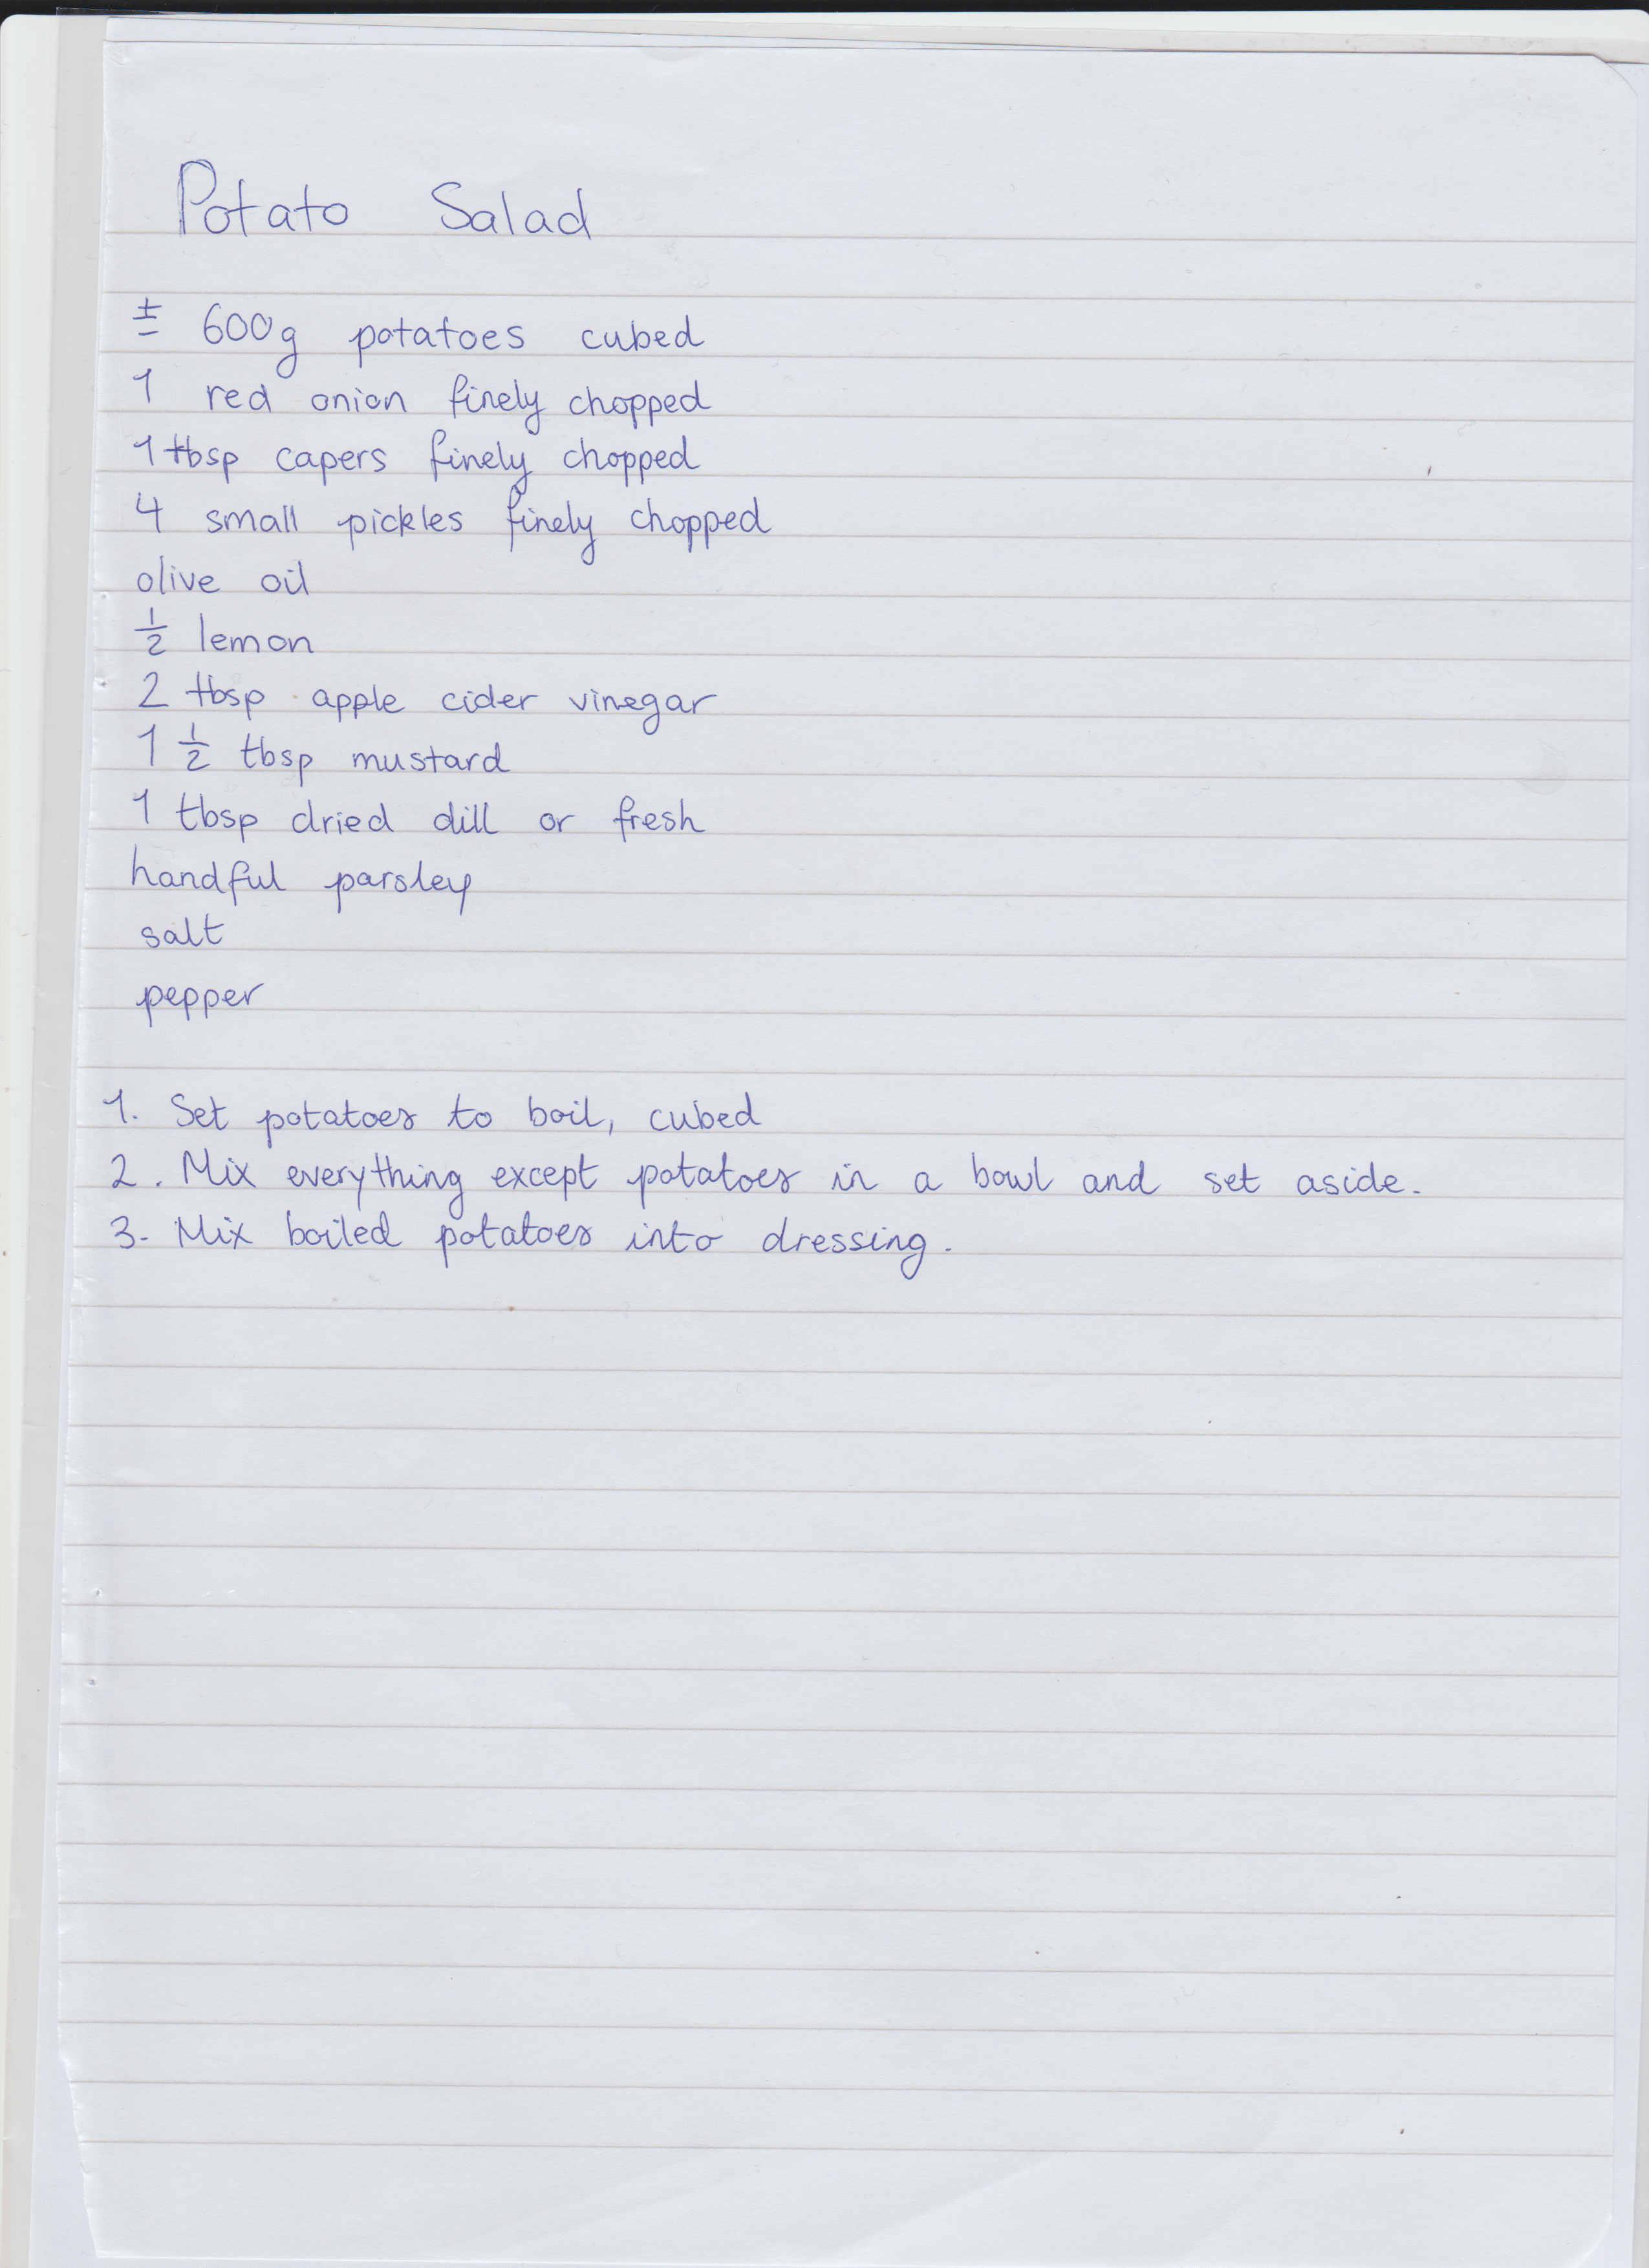 Potato Salad
± 600g potatoes cubed
1 red onion finely chopped
1 tbsp capers finely chopped
4 small pickles finely chopped
olive oil
½ lemon
2 tbsp apple cider vinegar
1 ½ tbsp mustard
1 tbsp dried dill or fresh
handful parsley
salt
pepper
1. Set potatoes to boil, cubed
2. Mix everything except potatoes in a bowl and set aside.
3. Mix boiled potatoes into dressing.